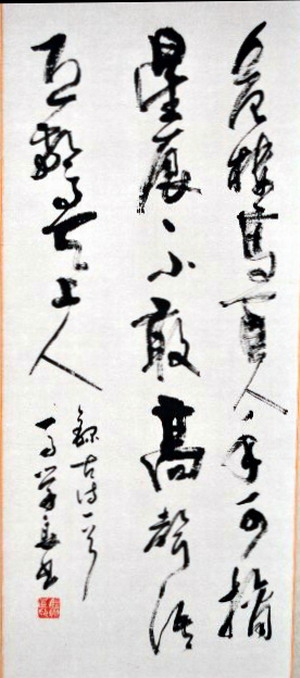 危樓高百尺手可摘
星辰不敢高聲語
恐驚天上人
錄古詩一首
書